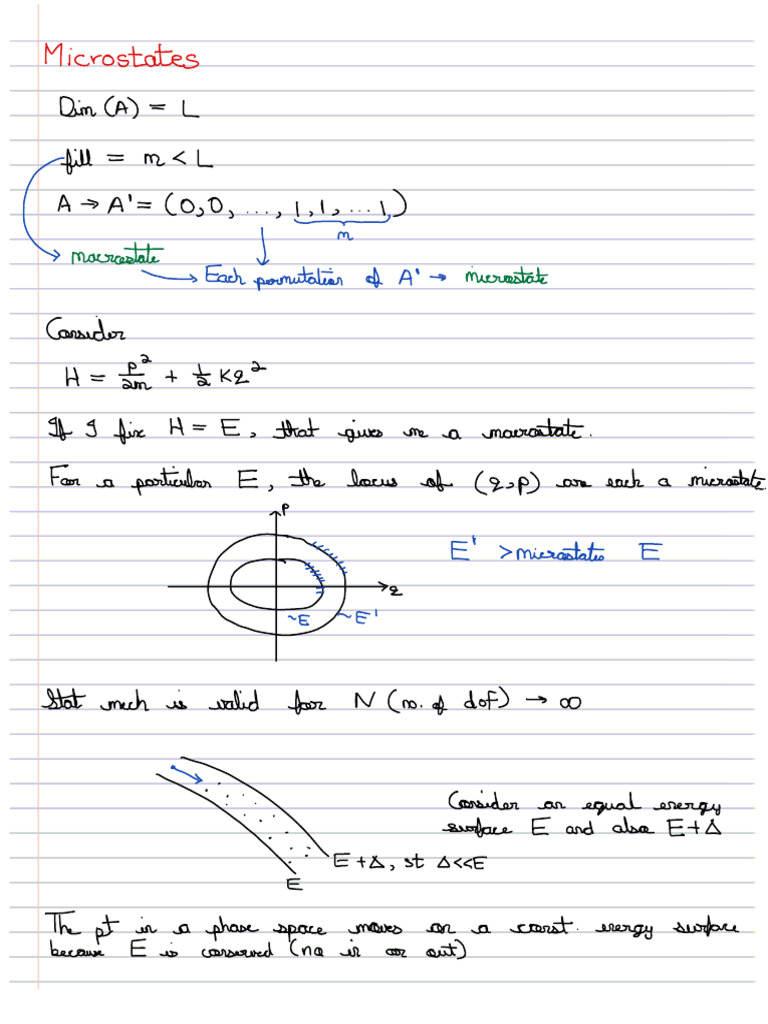 Microstates
Dim (A) = L
fill = m < L
A → A' = (0,0, ..., 1,1, ...1)
m
macrostate
Each permutation of A' → microstate
Consider
H = p²/2m + 1/2 Kq²
If I fix H = E, that gives me a macrostate.
For a particular E, the locus of (q,p) are each a microstate.
p
E' > microstates E
q
~E
~E'
Stat mech is valid for N (no. of dof) → ∞
Consider an equal energy
surface E and also E+Δ
E+Δ, st Δ<<E
E
The pt in a phase space moves on a const. energy surface
because E is conserved (no in or out)